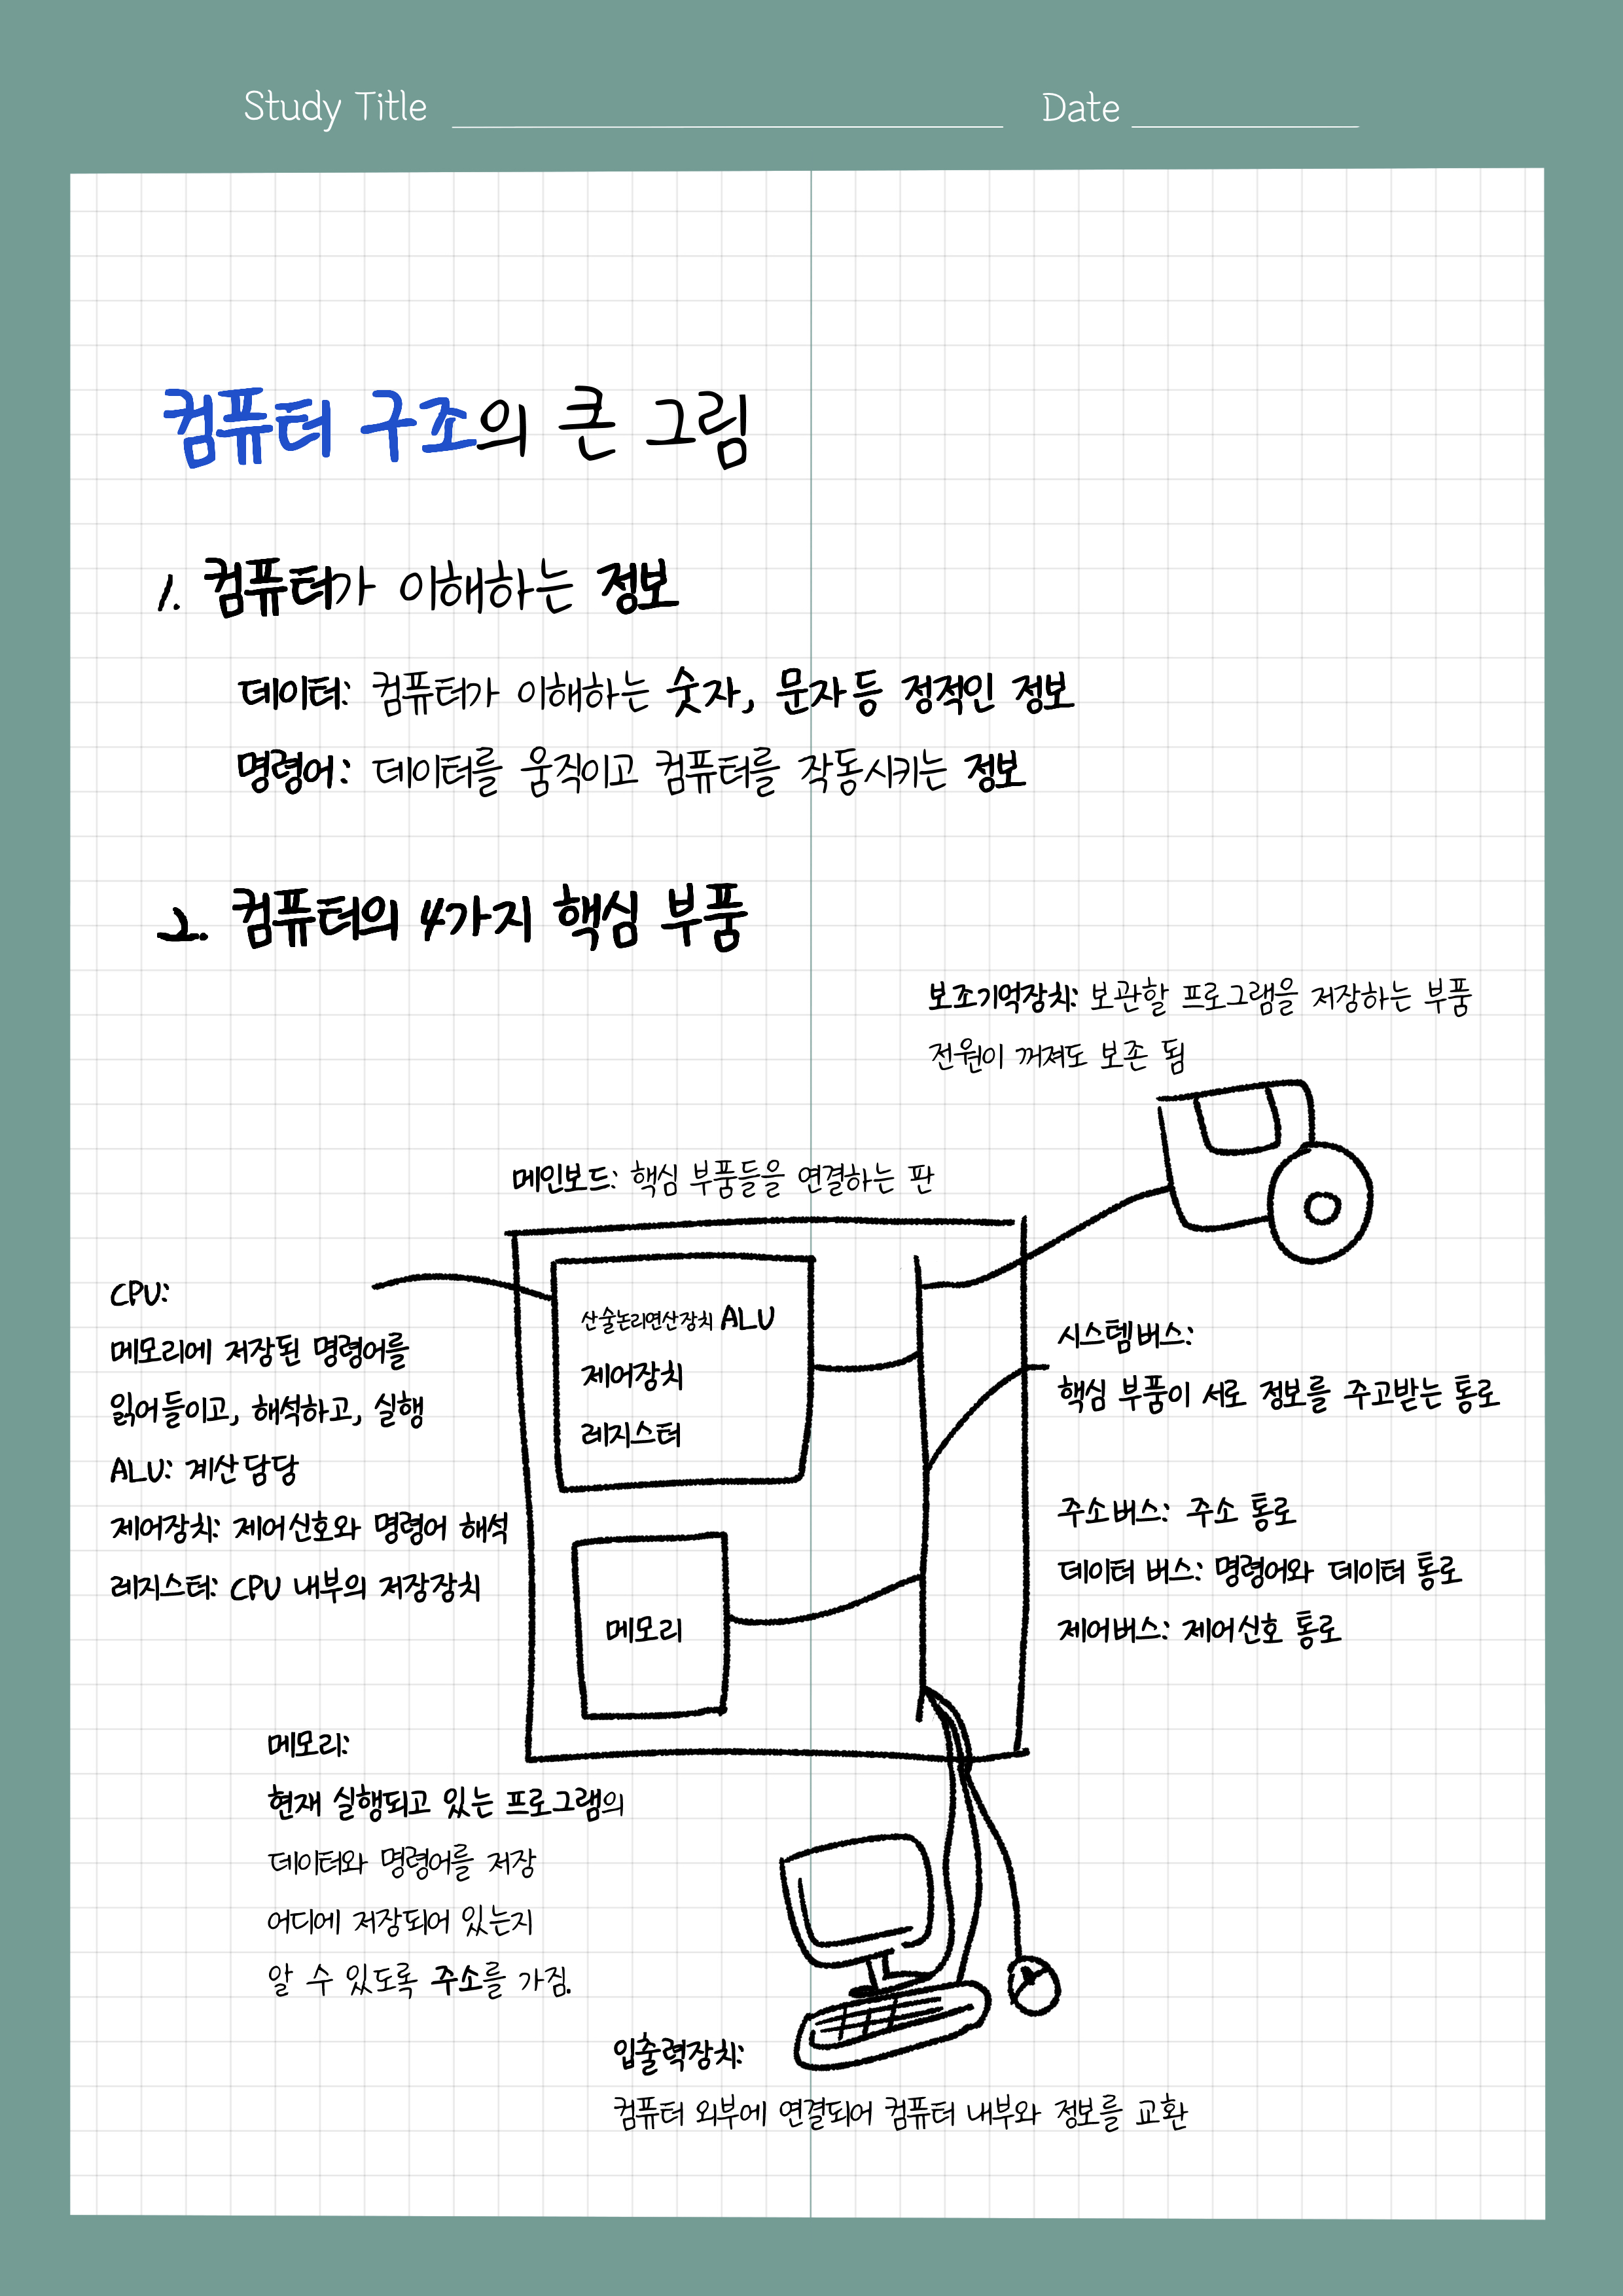 Study Title
Date
컴퓨터 구조의 큰 그림
1. 컴퓨터가 이해하는 정보
데이터: 컴퓨터가 이해하는 숫자, 문자 등 정적인 정보
명령어: 데이터를 움직이고 컴퓨터를 작동시키는 정보
2. 컴퓨터의 4가지 핵심 부품
보조기억장치: 보관할 프로그램을 저장하는 부품
전원이 꺼져도 보존 됨
메인보드: 핵심 부품들을 연결하는 판
CPU:
메모리에 저장된 명령어를
읽어 들이고, 해석하고, 실행
ALU: 계산 담당
제어장치: 제어신호와 명령어 해석
레지스터: CPU 내부의 저장장치
산술논리연산장치 ALU
제어장치
레지스터
메모리
시스템 버스:
핵심 부품이 서로 정보를 주고받는 통로
주소 버스: 주소 통로
데이터 버스: 명령어와 데이터 통로
제어버스: 제어신호 통로
메모리:
현재 실행되고 있는 프로그램의
데이터와 명령어를 저장
어디에 저장되어 있는지
알 수 있도록 주소를 가짐.
입출력장치:
컴퓨터 외부에 연결되어 컴퓨터 내부와 정보를 교환